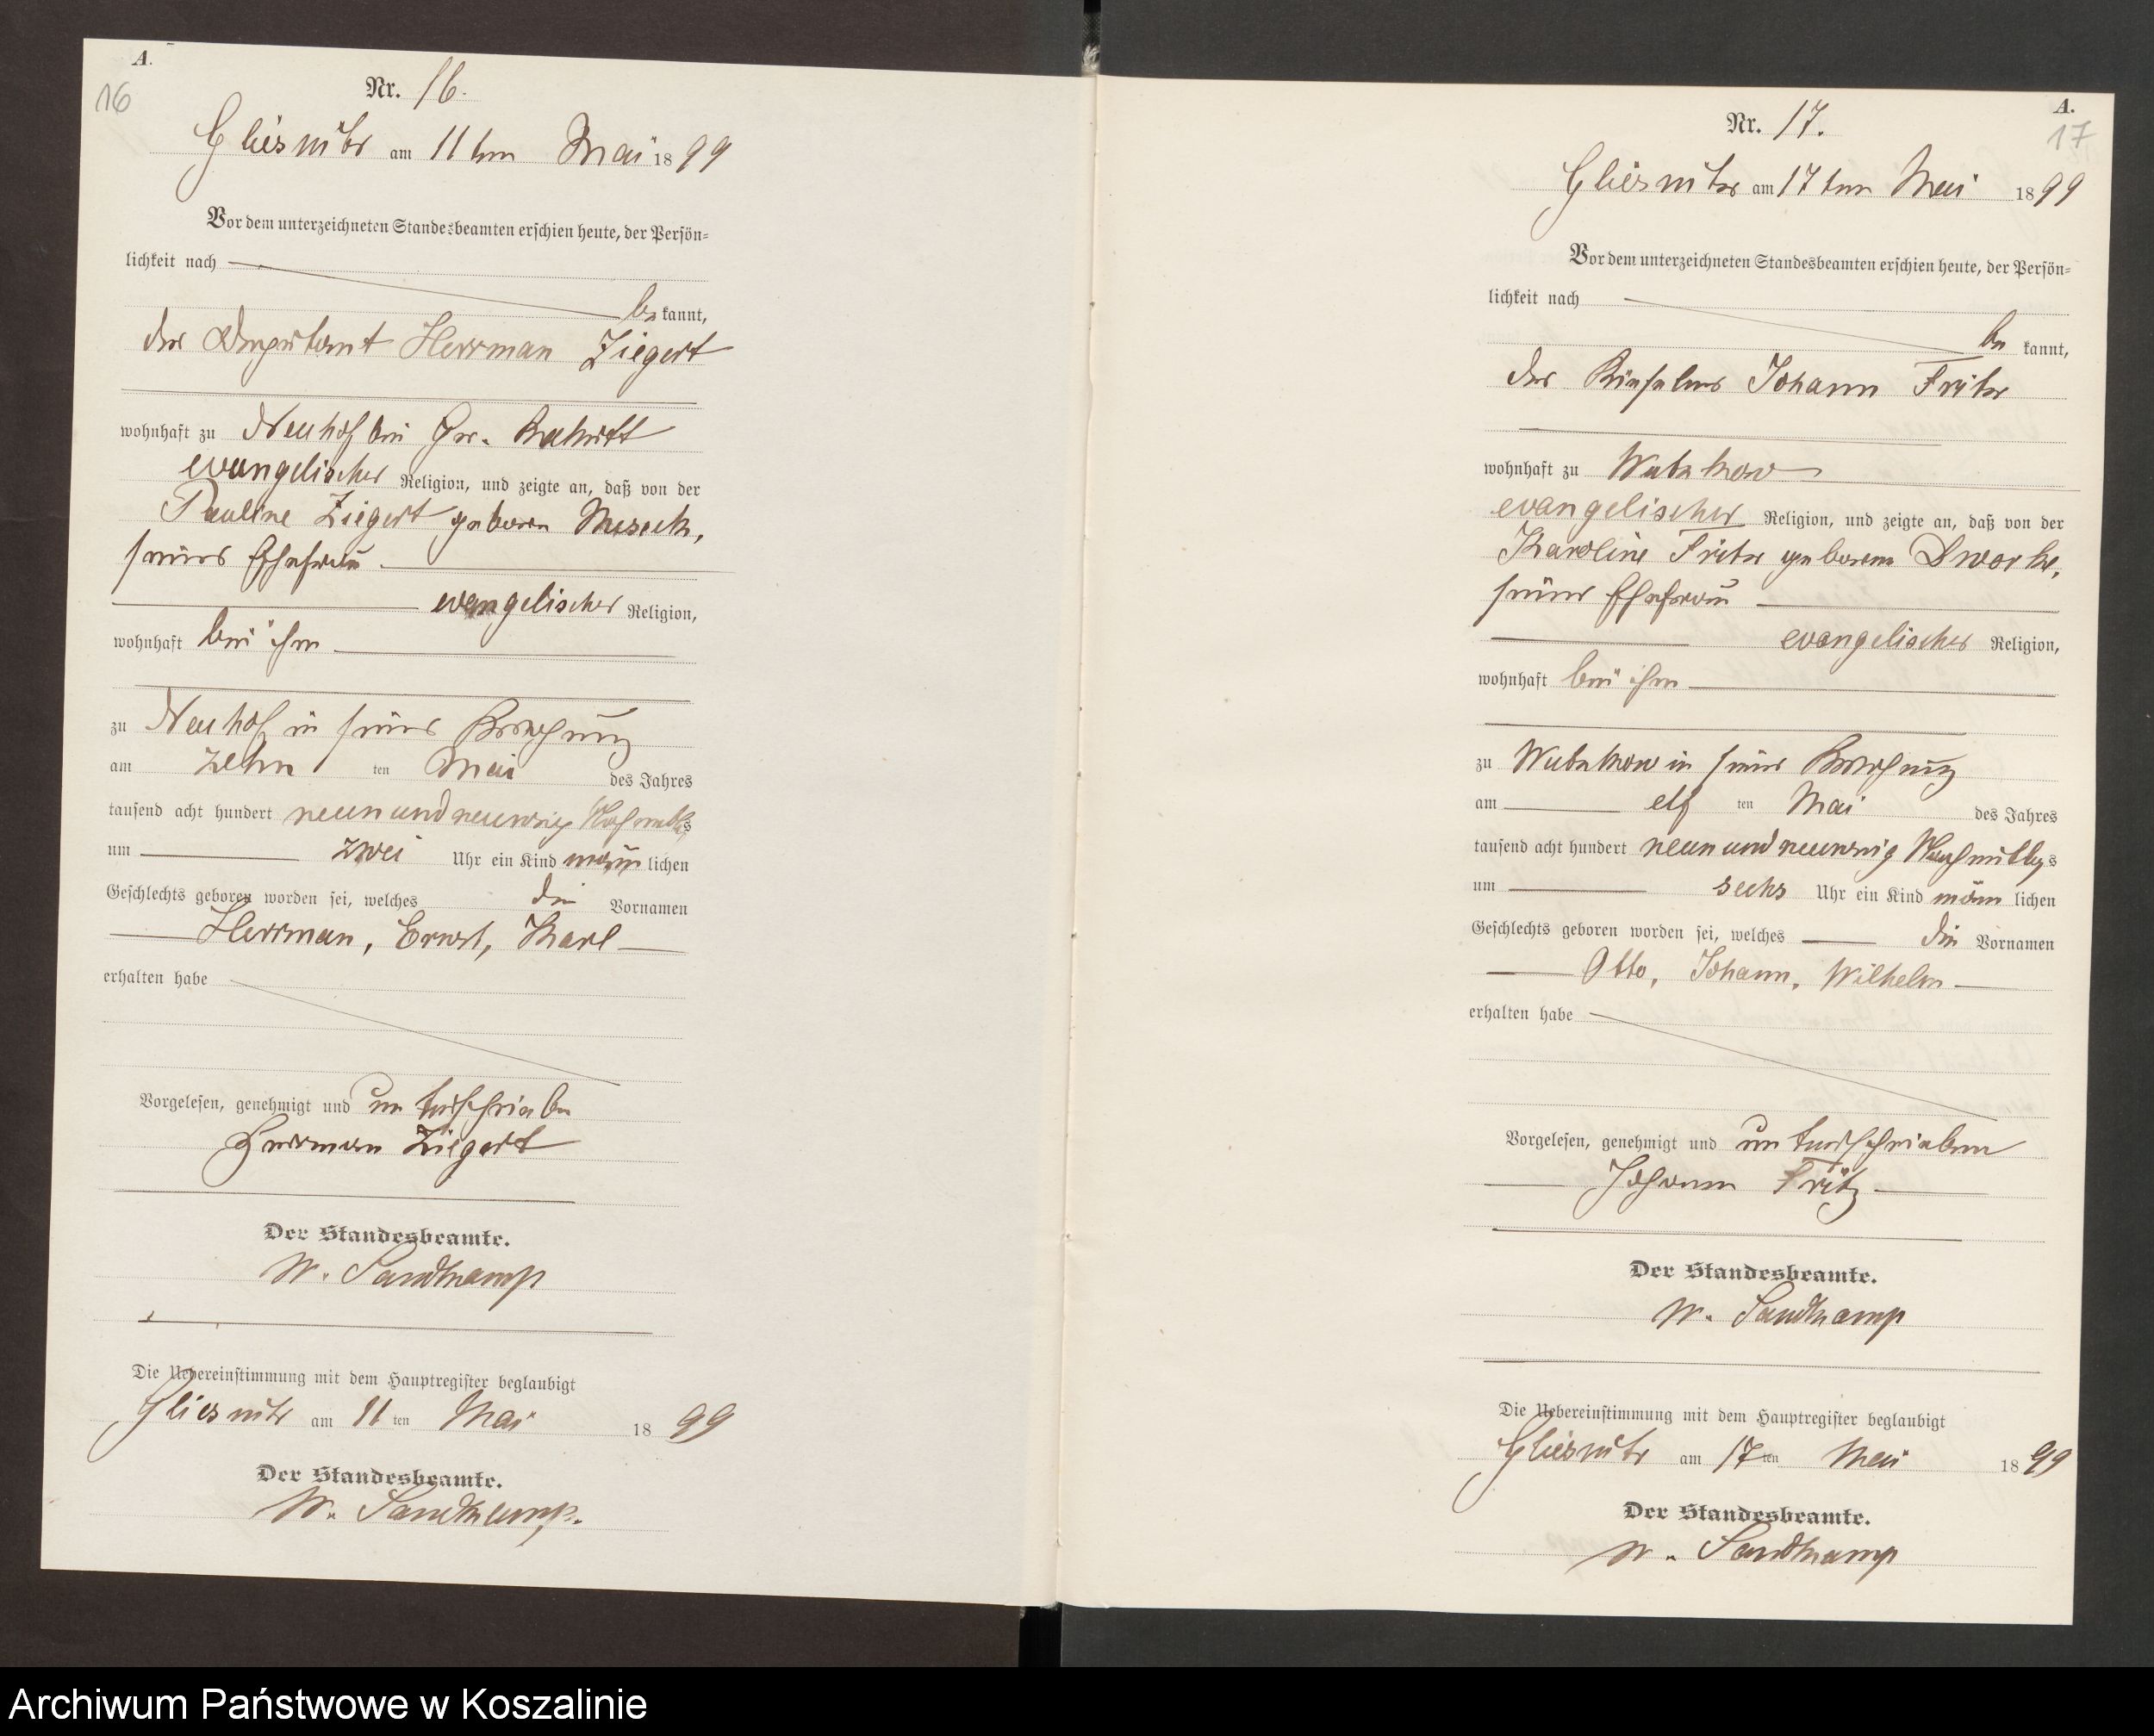 A.
16
Nr. 16.
Gliesnitz am 11ten Mai 1899
Vor dem unterzeichneten Standesbeamten erschien heute, der Persön-
lichkeit nach
bekannt,
der Deputant Herrman Ziegert
wohnhaft zu Neuhof bei Gr.
evangelischer Religion, und zeigte an, daß von der
Pauline Ziegert geboren
seiner Ehefrau
evangelischer Religion,
wohnhaft bei ihm
zu Neuhof in seiner Wohnung
am zehn ten Mai des Jahres
tausend acht hundert neunundneunzig Nachmittags
um zwei Uhr ein Kind männlichen
Geschlechts geboren worden sei, welches die Vornamen
Herrman, Ernst, Karl
erhalten habe
Vorgelesen, genehmigt und unterschrieben
Herrman Ziegert
Der Standesbeamte.
W. Sandkamp
Die Uebereinstimmung mit dem Hauptregister beglaubigt
Gliesnitz am 11ten Mai 1899
Der Standesbeamte.
W. Sandkamp.
A.
17
Nr. 17.
Gliesnitz am 17ten Mai 1899
Vor dem unterzeichneten Standesbeamten erschien heute, der Persön-
lichkeit nach
bekannt,
der Johann Fritz
wohnhaft zu
evangelischer Religion, und zeigte an, daß von der
Karoline Fritz geborene Dworke,
seiner Ehefrau
evangelischer Religion,
wohnhaft bei ihm
zu in seiner Wohnung
am elf ten Mai des Jahres
tausend acht hundert neunundneunzig Nachmittags
um sechs Uhr ein Kind männlichen
Geschlechts geboren worden sei, welches die Vornamen
Otto, Johann, Wilhelm
erhalten habe
Vorgelesen, genehmigt und unterschrieben
Johann Fritz
Der Standesbeamte.
W. Sandkamp
Die Uebereinstimmung mit dem Hauptregister beglaubigt
Gliesnitz am 17ten Mai 1899
Der Standesbeamte.
W. Sandkamp
Archiwum Państwowe w Koszalinie